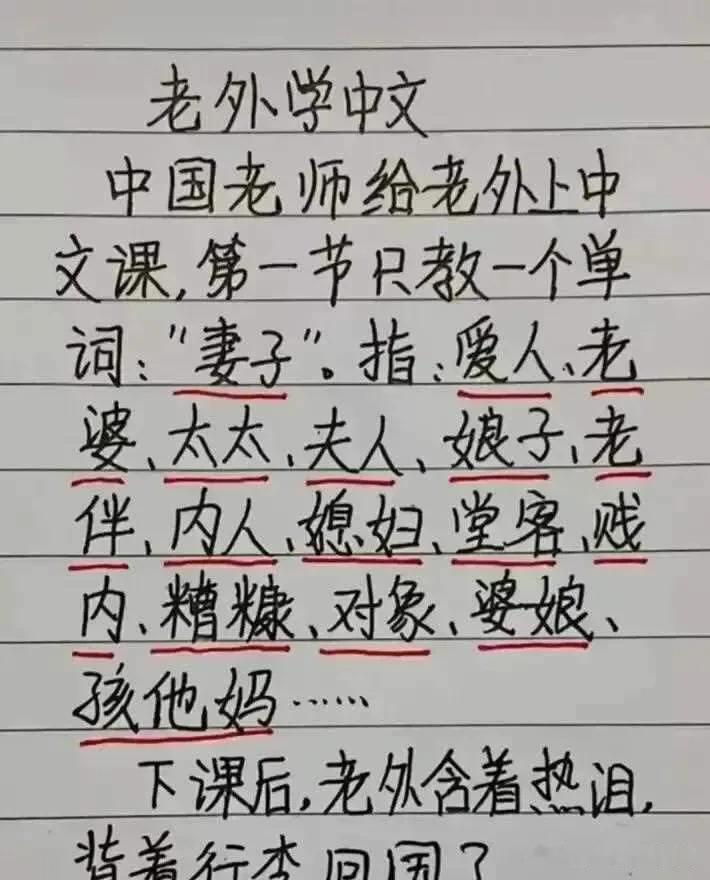 老外学中文
中国老师给老外上中
文课,第一节只教一个单
词:"妻子"。指:爱人、老
婆、太太、夫人、娘子、老
伴、内人、媳妇、堂客、贱
内、糟糠、对象、婆娘、
孩他妈……
下课后,老外含着热泪,
背着行李回国了